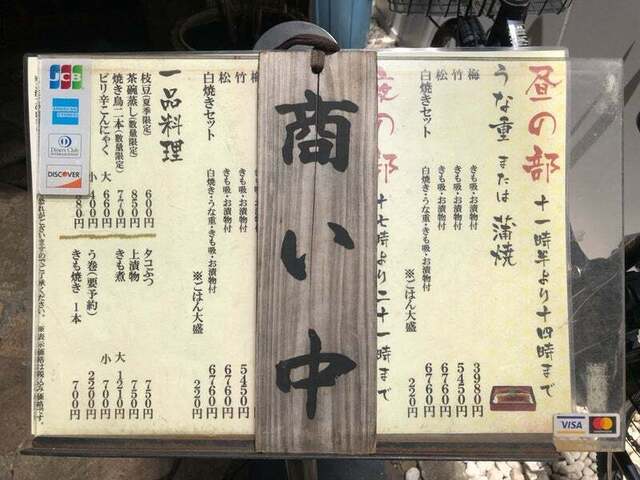 昼の部 十一時半より十四時まで
うな重 または 蒲焼
梅 きも吸・お漬物付 3980円
竹 きも吸・お漬物付 5450円
松 きも吸・お漬物付 6760円
白焼きセット 白焼き・うな重・きも吸・お漬物付 6760円
※ごはん大盛 220円
夜の部 十七時より二十一時まで
商い中
梅
竹 きも吸・お漬物付 5450円
松 きも吸・お漬物付 6760円
白焼きセット 白焼き・うな重・きも吸・お漬物付 6760円
※ごはん大盛 220円
一品料理
枝豆(夏季限定) 600円
茶碗蒸し(数量限定) 850円
焼き鳥二本(数量限定) 770円
ピリ辛こんにゃく 大 660円
小 400円
タコぶつ 750円
上漬物 750円
きも煮 大 1210円
小 700円
う巻(要予約) 2200円
きも焼き 1本 700円
※表示価格は税込み価格です。
JCB
AMERICAN EXPRESS
Diners Club INTERNATIONAL
DISCOVER
VISA
mastercard